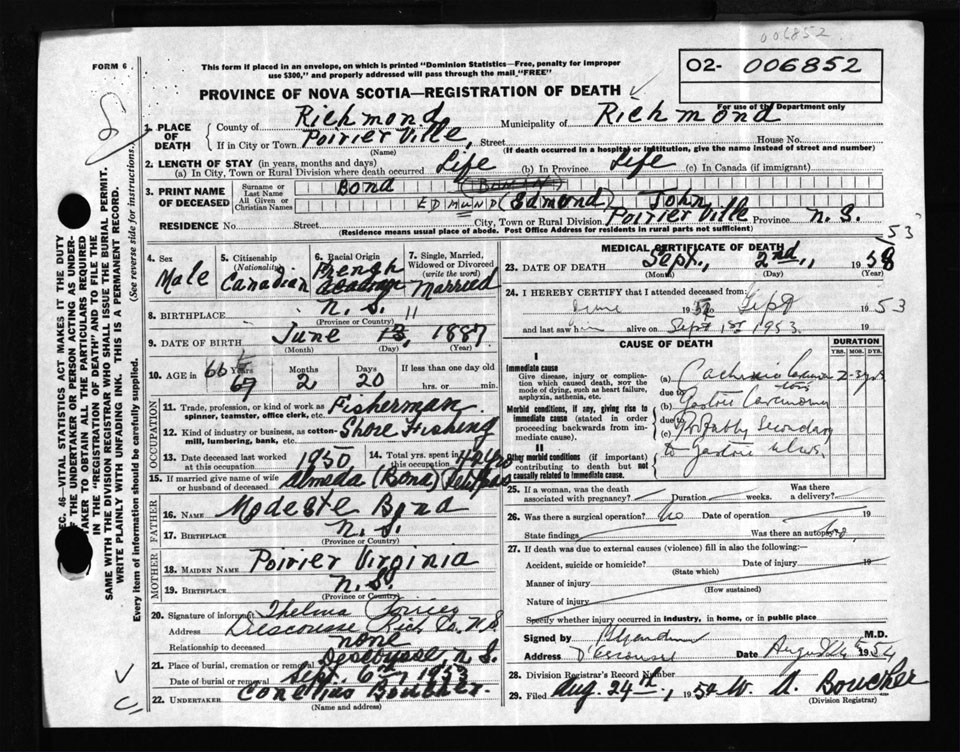 006852
FORM 6
This form if placed in an envelope, on which is printed "Dominion Statistics—Free, penalty for improper
use $300," and properly addressed will pass through the mail "FREE"
02- 006852
For use of the Department only
PROVINCE OF NOVA SCOTIA—REGISTRATION OF DEATH
1. PLACE OF DEATH { County of Richmond Municipality of Richmond
If in City or Town Poirier Ville, Street House No.
(Name) (If death occurred in a hospital or institution, give the name instead of street and number)
2. LENGTH OF STAY (in years, months and days)
(a) In City, Town or Rural Division where death occurred Life (b) In Province Life (c) In Canada (if immigrant)
3. PRINT NAME OF DECEASED { Surname or Last Name Bona (BONIN)
All Given or Christian Names EDMUND (Edmond) John
RESIDENCE No. Street City, Town or Rural Division Poirier Ville Province N.S.
(Residence means usual place of abode. Post Office Address for residents in rural parts not sufficient)
4. Sex Male
5. Citizenship (Nationality) Canadian
6. Racial Origin French
7. Single, Married, Widowed or Divorced (write the word) Married
8. BIRTHPLACE N.S. "
(Province or Country)
9. DATE OF BIRTH June 13, 1887
(Month) (Day) (Year)
10. AGE in 66 Years 67 Months 2 Days 20 If less than one day old
hrs. or min.
OCCUPATION
11. Trade, profession, or kind of work as Fisherman
spinner, teamster, office clerk, etc.
12. Kind of industry or business, as cotton- Shore Fishing
mill, lumbering, bank, etc.
13. Date deceased last worked at this occupation 1950
14. Total yrs. spent in this occupation
15. If married give name of wife or husband of deceased Almeda (Bona)
FATHER
16. Name Modeste Bona
17. BIRTHPLACE N.S.
(Province or Country)
MOTHER
18. MAIDEN NAME Poirier Virginia
19. BIRTHPLACE N.S.
(Province or Country)
20. Signature of informant Thelma Poirier
Address Descousse Rich Co. N.S
Relationship to deceased none
21. Place of burial, cremation or removal Descousse N.S.
Date of burial or removal Sept. 6th 1953
22. UNDERTAKER Cornelius Boucher.
(Name and address)
MEDICAL CERTIFICATE OF DEATH
23. DATE OF DEATH Sept., 2nd, 1958 53
(Month) (Day) (Year)
24. I HEREBY CERTIFY that I attended deceased from:
June 19 to Sept 1953
and last saw him alive on Sept 1st 1953. 19
CAUSE OF DEATH
DURATION
YRS. MOS. DYS.
I
Immediate cause
Give disease, injury, or complication which caused death, not the mode of dying, such as heart failure, asphyxia, asthenia, etc.
(a) Cachexia 2-3 yrs
due to
Morbid conditions, if any, giving rise to immediate cause (stated in order proceeding backwards from immediate cause).
(b) Gastric Carcinoma
due to
(c) Probably Secondary
to Gastric ulcer.
II
Other morbid conditions (if important) contributing to death but not causally related to immediate cause.
25. If a woman, was the death associated with pregnancy? Duration weeks. Was there a delivery?
26. Was there a surgical operation? No Date of operation 19
State findings Was there an autopsy? No
27. If death was due to external causes (violence) fill in also the following:—
Accident, suicide or homicide? Date of injury 19
(State which)
Manner of injury
(How sustained)
Nature of injury
Specify whether injury occurred in industry, in home, or in public place
Signed by M.D.
Address D'escousse Date August 24 1954
28. Division Registrar's Record Number
29. Filed Aug. 24th, 1954 W. A. Boucher
(Division Registrar)
SEC. 46—VITAL STATISTICS ACT MAKES IT THE DUTY
OF THE UNDERTAKER OR PERSON ACTING AS UNDER-
TAKER TO OBTAIN ALL THE PARTICULARS REQUIRED
IN THE "REGISTRATION OF DEATH" AND TO FILE THE
SAME WITH THE DIVISION REGISTRAR WHO SHALL ISSUE THE BURIAL PERMIT.
WRITE PLAINLY WITH UNFADING INK. THIS IS A PERMANENT RECORD.
Every item of information should be carefully supplied. (See reverse side for instructions.)